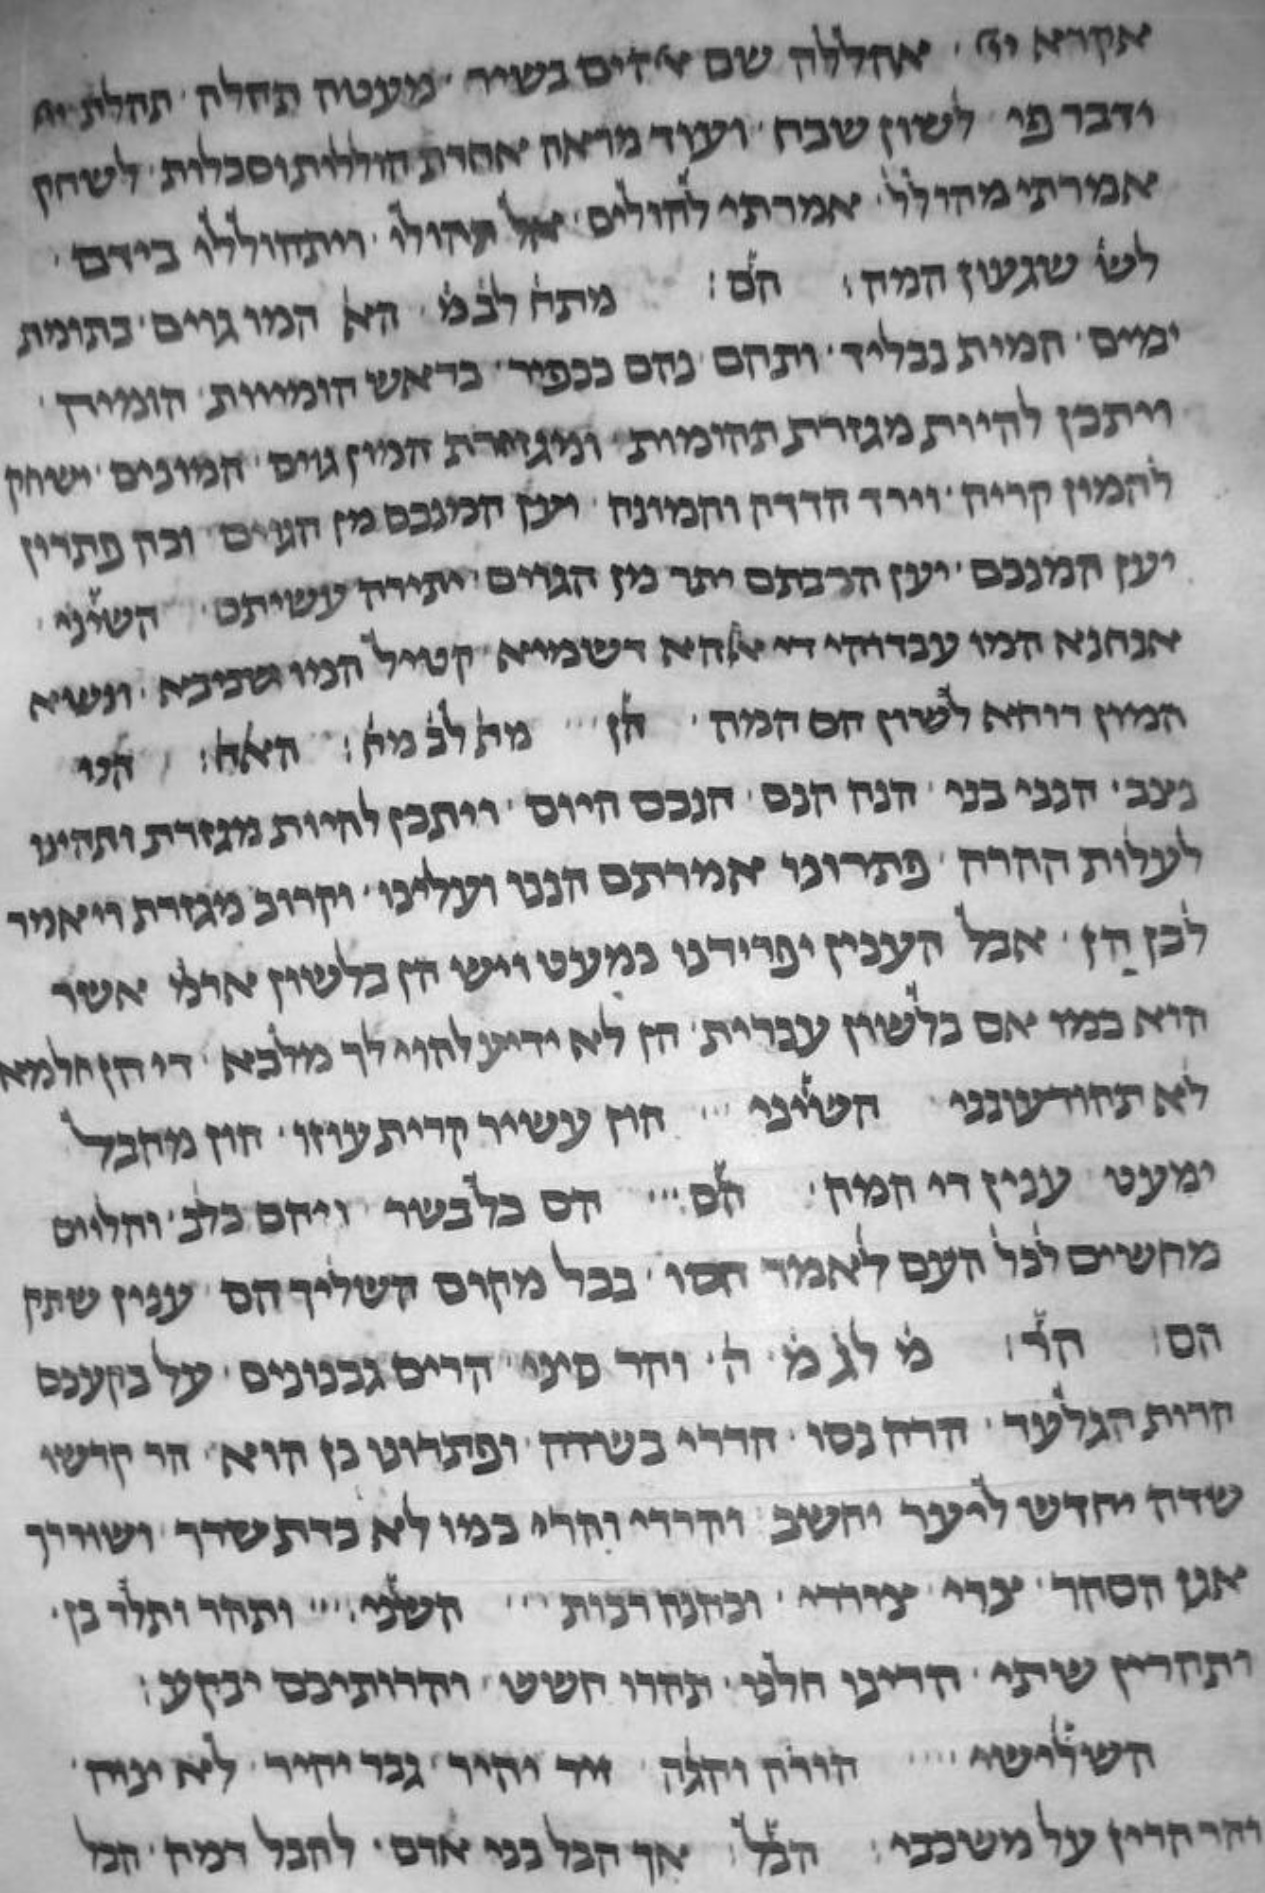 אקרא יי · אהללה שם אלהים בשיר · מעטה תהלה · תהלת יי
ידבר פי לשון שבח · ועוד מראה אחרת הוללות וסכלות · לשחק
אמרתי מהולל · אמרתי להולים · אל תהולו · ויתהוללו בידם ·
לש שגעון המה : הם : מתח לב מ הא המו גוים · כהומת
ימים · המית נבליך · ותהם · נהם ככפיר · בראש הומיות · הומיה ·
ויתכן להיות מגזרת תהומות · ומגזרת המון גוים · המונים · ישחק
להמון קריה · וירד הדרה והמונה · יען המנכם מן הגוים · וכה פתרון
יען המנכם · יען הרבתם יתר מן הגוים · יתירה עשיתם · השיני ·
אנחנא המו עבדוהי די אלהא דשמיא · קטיל המו שביבא · ונשיא
המון רוחא לשון הם המה · הן ··· מת לב מח : האח : הנו
נצב · הנני בני · הנה הנם · הנכם היום · ויתכן להיות מגזרת ותהינו
לעלות ההרה · פתרונו אמרתם הננו ועלינו · וקרוב מגזרת ויאמר
לבן הן · אבל הענין יפרידנו כמעט ויש הן בלשון ארמ אשר
הוא כמו אם בלשון עברית · הן לא ידיע להוי לך מלכא · די הן חלמא
לא תהודעונני השיני ··· הון עשיר קרית עוזו · הון מהבל
ימעט ענין די המה · הם ··· הס כל בשר ויהס כלב · והלוים
מחשים לכל העם לאמר הסו · בכל מקום השליך הס · ענין שתק
הס : הר : מ לג מ ה · והר סיני · הרים גבנונים · על בקעכם
הרות הגלעד · הרה נסו · הררי בשדה · ופתרונו כן הוא · הר קדשו
שדה יחדש ליער יחשב והררי והרי כמו לא כדת שדך ושורך
אגן הסהר · צרי · צוררי · וכהנה רבות ··· השני ··· ותהר ותלד בן ·
ותהרין שתי · הרינו חלנו · תהרו חשש · והרותיכם יבקע :
השלישי ···· הורה והגה · זיד יהיר · גבר יהיר · לא ינוה ·
והר הרין על משכבי : הבל : אך הבל בני אדם · להבל דמה · הבל